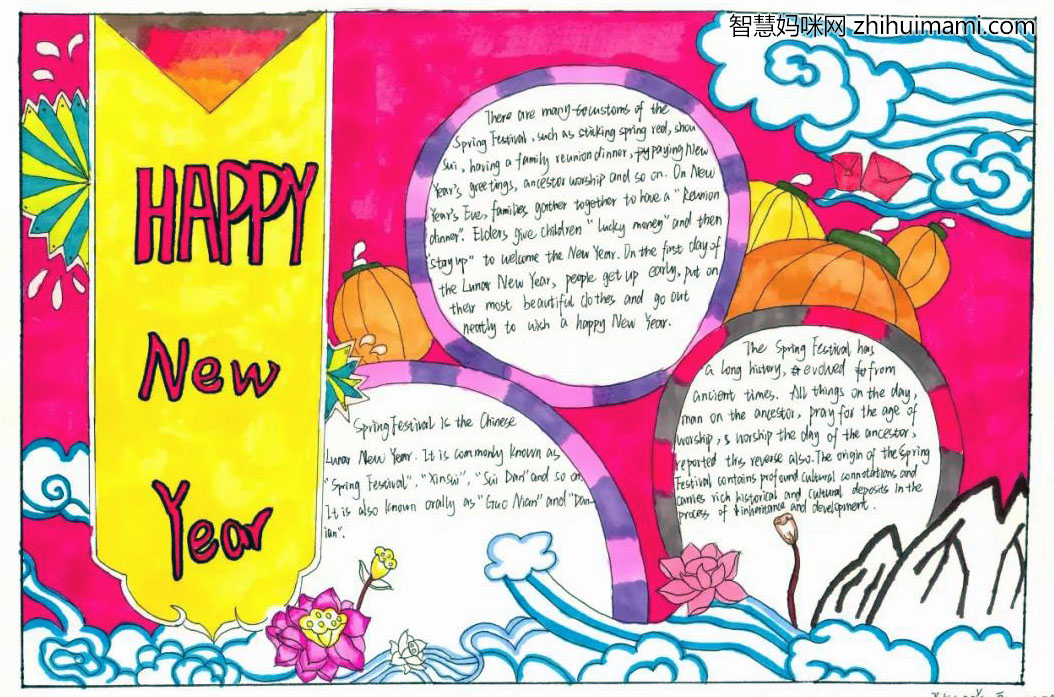 智慧妈咪网 zhihuimami.com
HAPPY
New
Year
There are many customs of the
Spring Festival, such as sticking spring red, shou
sui, having a family reunion dinner, paying New
Year's greetings, ancestor worship and so on. On New
Year's Eve, families gather together to have a "Reunion
dinner". Elders give children "lucky money" and then
"stay up" to welcome the New Year. On the first day of
the Lunar New Year, people get up early, put on
their most beautiful clothes and go out
neatly to wish a happy New Year.
Spring Festival is the Chinese
Lunar New Year. It is commonly known as
"Spring Festival", "Xinsui", "Sui Dan" and so on.
It is also known orally as "Guo Nian" and "Dan-
ian".
The Spring Festival has
a long history, evolved from
ancient times. All things on the day,
man on the ancestor, pray for the age of
worship, worship the day of the ancestor,
reported this reverse also. The origin of the Spring
Festival contains profound cultural connotations and
carries rich historical and cultural deposits in the
process of inheritance and development.